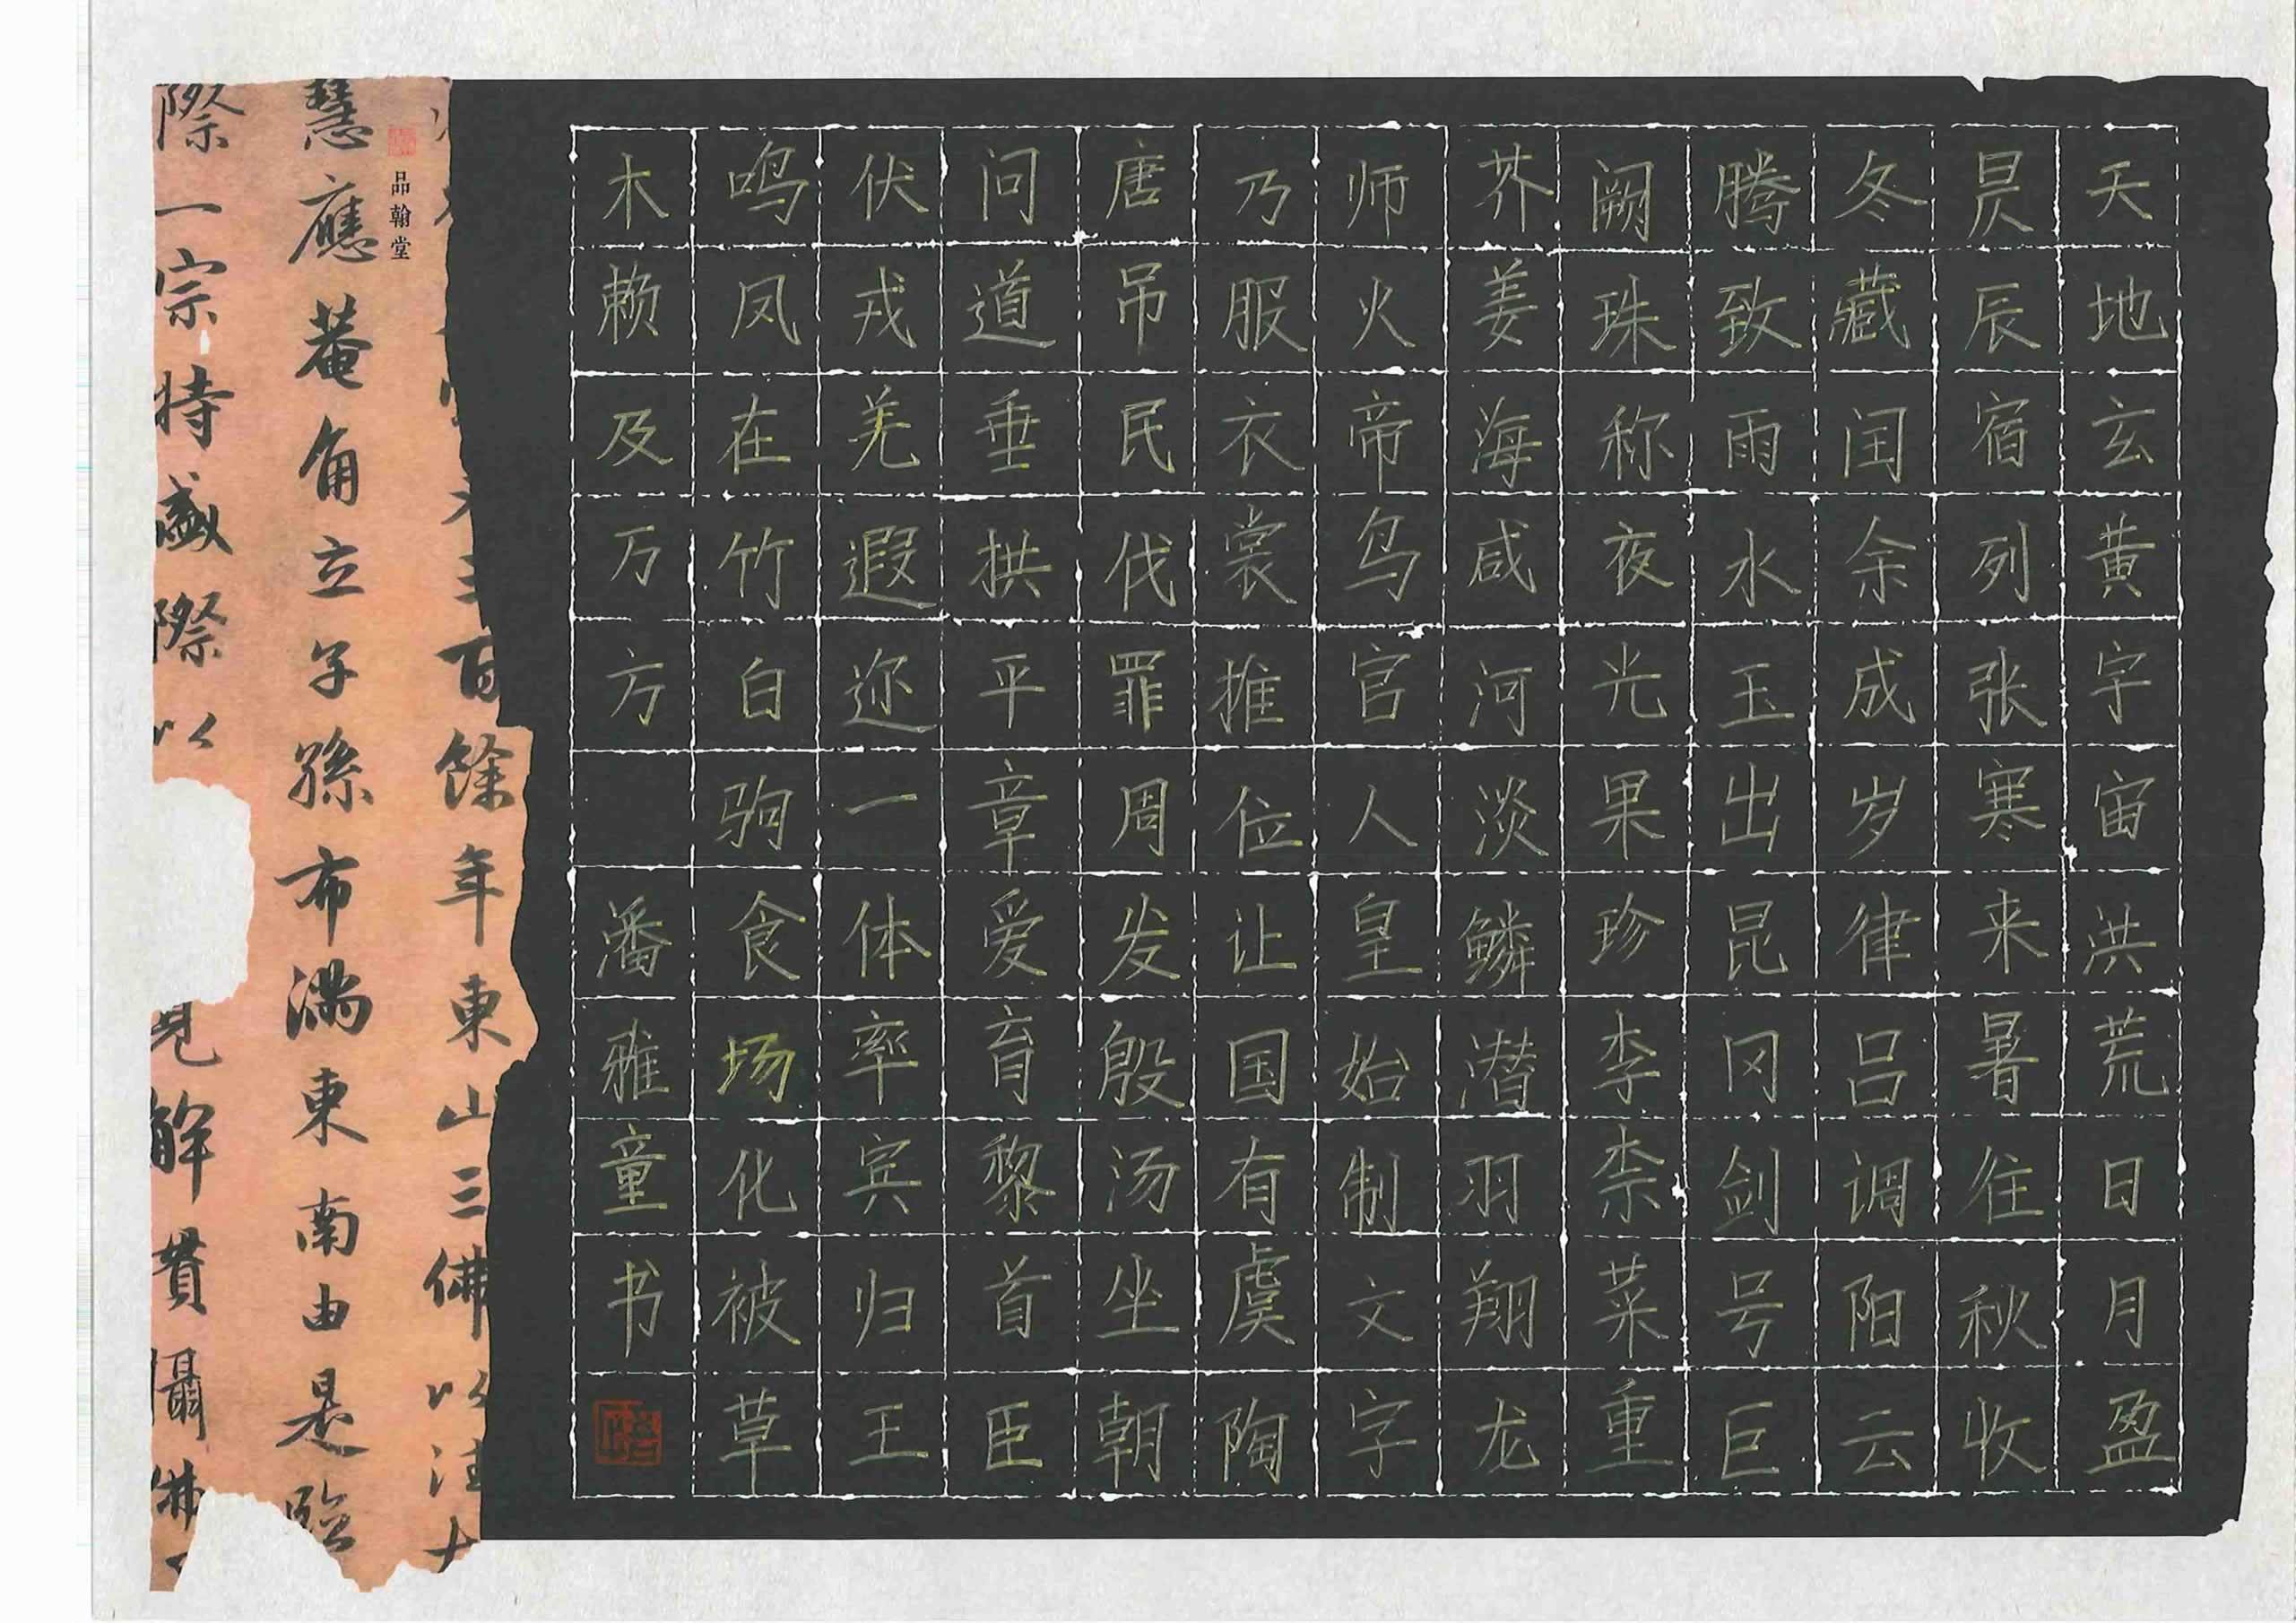 天地玄黄宇宙洪荒日月盈
昃辰宿列张寒来暑往秋收
冬藏闰余成岁律吕调阳云
腾致雨水玉出昆冈剑号巨
阙珠称夜光果珍李柰菜重
芥姜海咸河淡鳞潜羽翔龙
师火帝鸟官人皇始制文字
乃服衣裳推位让国有虞陶
唐吊民伐罪周发殷汤坐朝
问道垂拱平章爱育黎首臣
伏戎羌遐迩一体率宾归王
鸣凤在竹白驹食场化被草
木赖及万方 潘雅童书
百餘年東山三佛以
品翰堂
慧應菴角立子孫布滿東南由是臨
際一宗特盛際以 見解貫攝佛